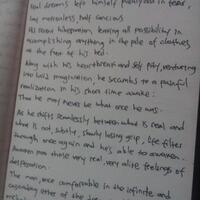 real dreams left himself paralyzed in fear,
lay motionless, half conscious
His recent hibernation, barring all possibility in
accomplishing anything in the pale of clothes
at the foot of his bed.
Along with his heartbreak and self pity, venturing
into wild imagination, he succumbs to a painful
realization in his short time awake:
That he may never be what once he was.
As he shifts seamlessly between what is real and
what is not, subtle, slowly losing grip, life filter
through once again and he's able to
from those very real, very alike feelings of
desperation.
The man, once comfortable in the infinite and
other of the